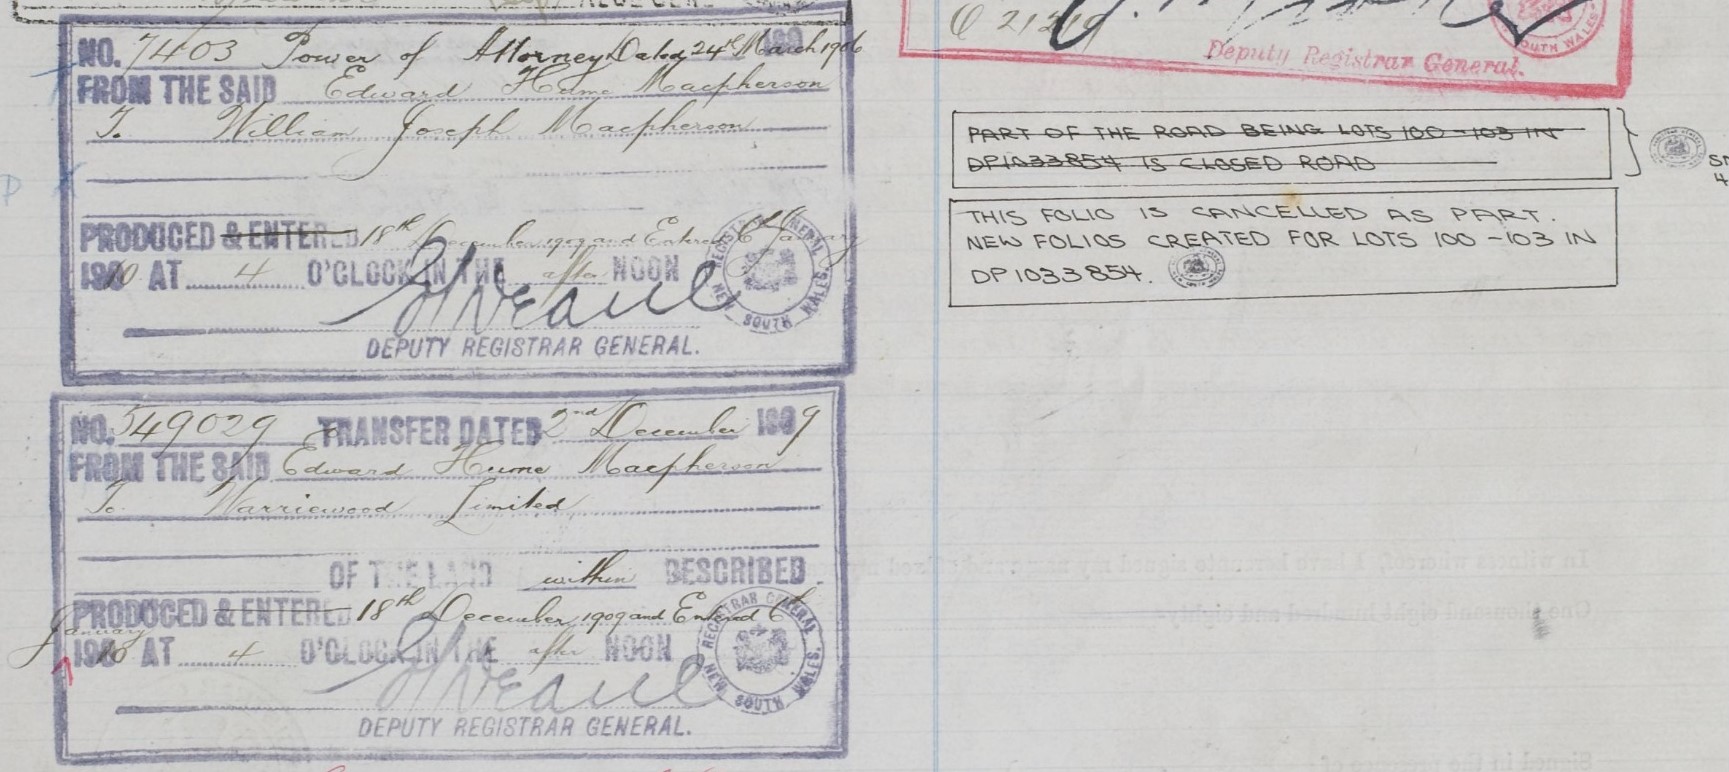 NO. 7403 Power of Attorney Dated 24th March 1906
FROM THE SAID Edward Hume Macpherson
To William Joseph Macpherson
PRODUCED & ENTERED 18th December 1909 and Entered 6th January
1910 AT 4 O'CLOCK IN THE after NOON
REGISTRAR GENERAL. NEW SOUTH WALES.
DEPUTY REGISTRAR GENERAL.
NO. 549029 TRANSFER DATED 2nd December 1909
FROM THE SAID Edward Hume Macpherson
To Warriewood Limited
OF THE LAND within DESCRIBED
PRODUCED & ENTERED 18th December 1909 and Entered 6th
January
1910 AT 4 O'CLOCK IN THE after NOON
REGISTRAR GENERAL NEW SOUTH WALES.
DEPUTY REGISTRAR GENERAL.
SOUTH WALES
Deputy Registrar General.
PART OF THE ROAD BEING LOTS 100-103 IN
DP1033854 IS CLOSED ROAD
THIS FOLIO IS CANCELLED AS PART.
NEW FOLIOS CREATED FOR LOTS 100-103 IN
DP1033854.
In witness whereof, I have hereunto signed my name and
One thousand eight hundred and eighty-
Signed in the presence of